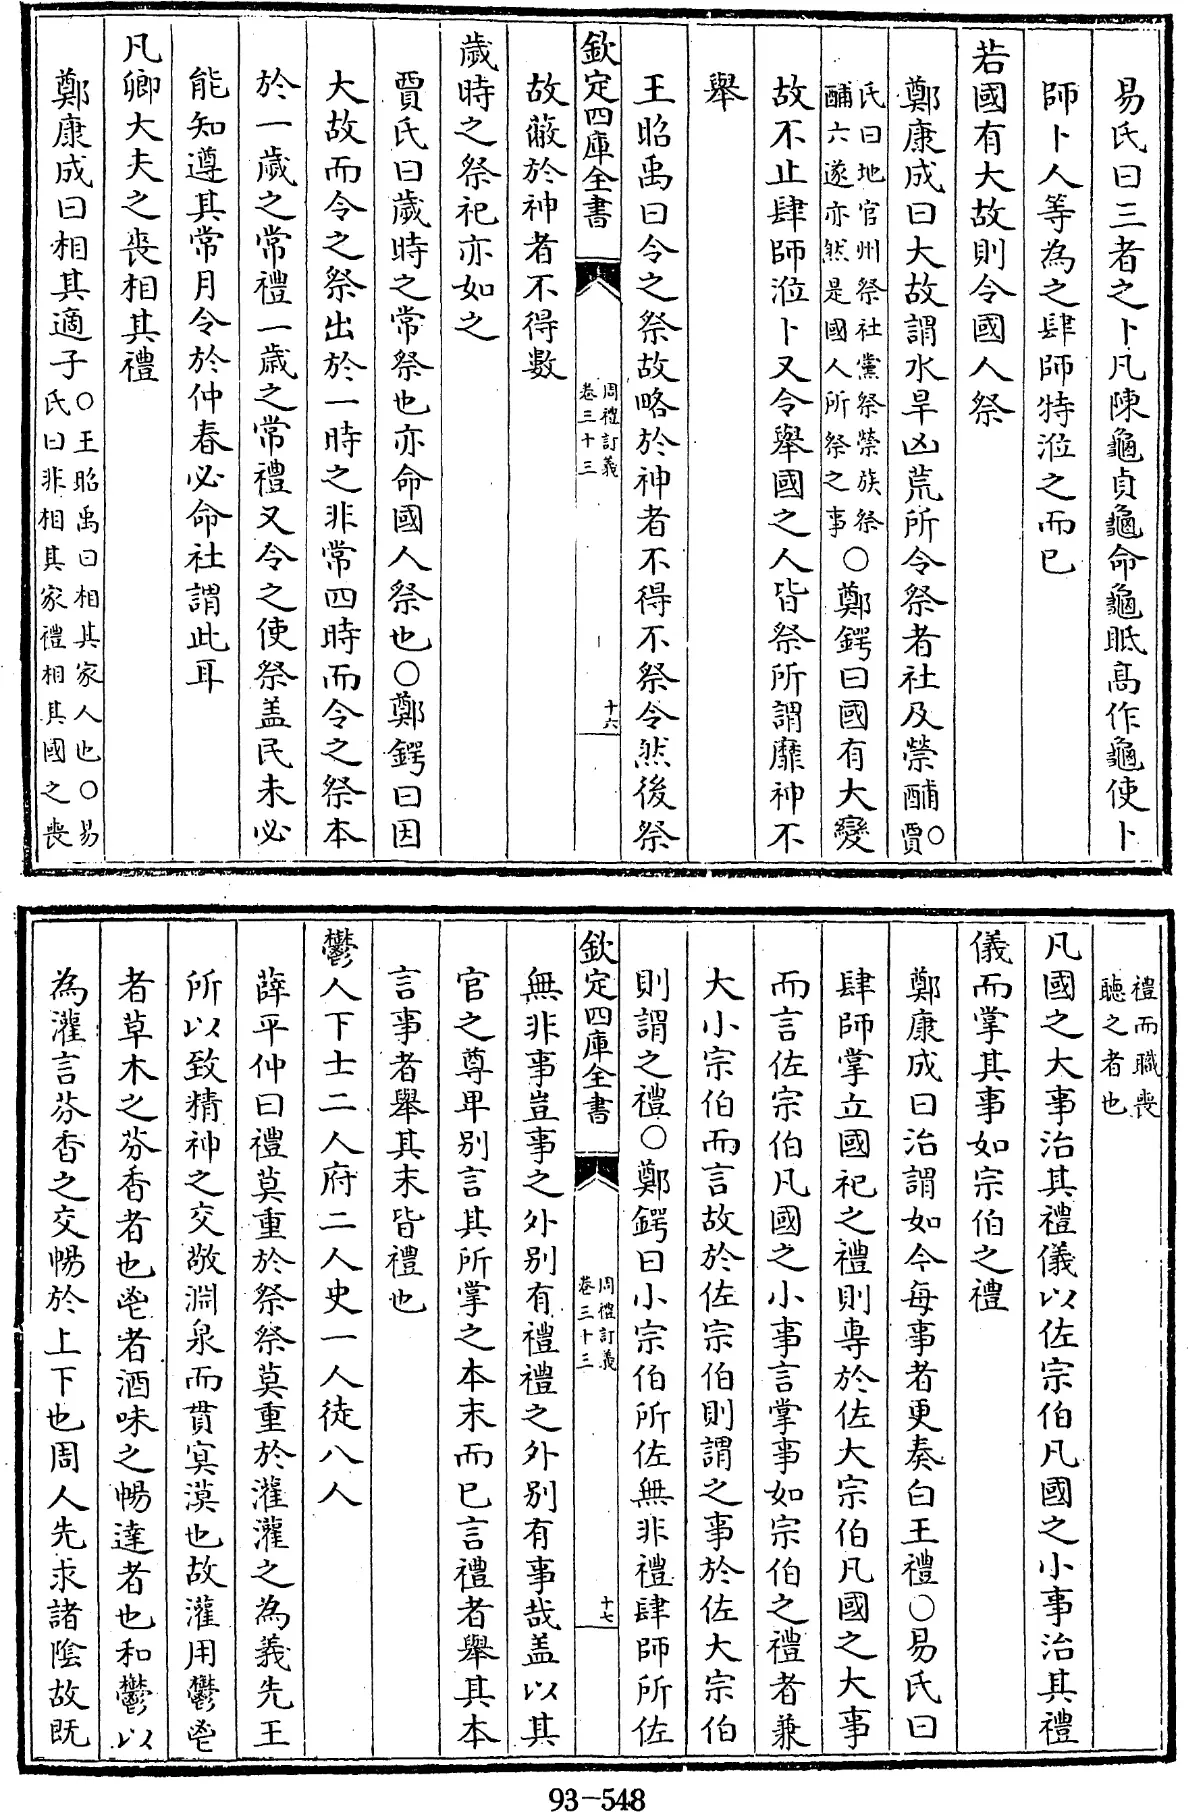 易氏曰三者之卜凡陳龜貞龜命龜眡高作龜使卜
師卜人等為之肆師特涖之而已
若國有大故則令國人祭
鄭康成曰大故謂水旱凶荒所令祭者社及禜酺○賈
氏曰地官州祭社黨祭禜族祭
酺六遂亦然是國人所祭之事○鄭鍔曰國有大變
故不止肆師涖卜又令舉國之人皆祭所謂靡神不
舉
王昭禹曰令之祭故略於神者不得不祭令然後祭
欽定四庫全書
周禮訂義
卷三十三
十六
故蔽於神者不得數
歲時之祭祀亦如之
賈氏曰歲時之常祭也亦命國人祭也○鄭鍔曰因
大故而令之祭出於一時之非常四時而令之祭本
於一歲之常禮一歲之常禮又令之使祭蓋民未必
能知遵其常月令於仲春必命社謂此耳
凡卿大夫之喪相其禮
鄭康成曰相其適子○王昭禹曰相其家人也○易
氏曰非相其家禮相其國之喪
禮而職喪
聽之者也
凡國之大事治其禮儀以佐宗伯凡國之小事治其禮
儀而掌其事如宗伯之禮
鄭康成曰治謂如今每事者更奏白王禮○易氏曰
肆師掌立國祀之禮則專於佐大宗伯凡國之大事
而言佐宗伯凡國之小事言掌事如宗伯之禮者兼
大小宗伯而言故於佐宗伯則謂之事於佐大宗伯
則謂之禮○鄭鍔曰小宗伯所佐無非禮肆師所佐
欽定四庫全書
周禮訂義
卷三十三
十七
無非事豈事之外別有禮禮之外別有事哉蓋以其
官之尊卑別言其所掌之本末而已言禮者舉其本
言事者舉其末皆禮也
鬱人下士二人府二人史一人徒八人
薛平仲曰禮莫重於祭祭莫重於灌灌之為義先王
所以致精神之交敬淵泉而貫冥漠也故灌用鬱鬯
者草木之芬香者也鬯者酒味之暢達者也和鬱以
為灌言芬香之交暢於上下也周人先求諸陰故既
93-548